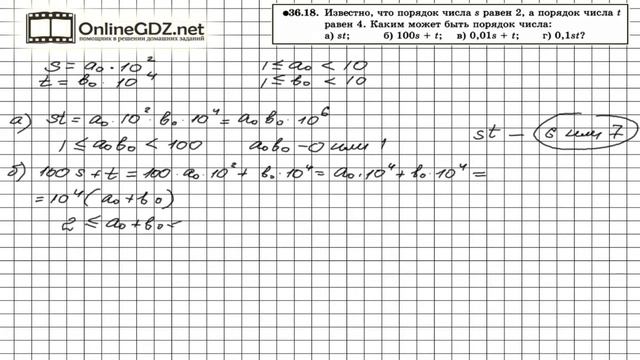 OnlineGDZ.net
помощник в решении домашних заданий
•36.18. Известно, что порядок числа s равен 2, а порядок числа t
равен 4. Каким может быть порядок числа:
а) st; б) 100s + t; в) 0,01s + t; г) 0,1st?
s = a₀ · 10² 1 ≤ a₀ < 10
t = b₀ · 10⁴ 1 ≤ b₀ < 10
а) st = a₀ · 10² · b₀ · 10⁴ = a₀ b₀ · 10⁶
1 ≤ a₀b₀ < 100 a₀b₀ – 0 или 1 st – 6 или 7
б) 100s + t = 100 · a₀ · 10² + b₀ · 10⁴ = a₀ · 10⁴ + b₀ · 10⁴ =
= 10⁴ (a₀ + b₀)
2 ≤ a₀ + b₀ <